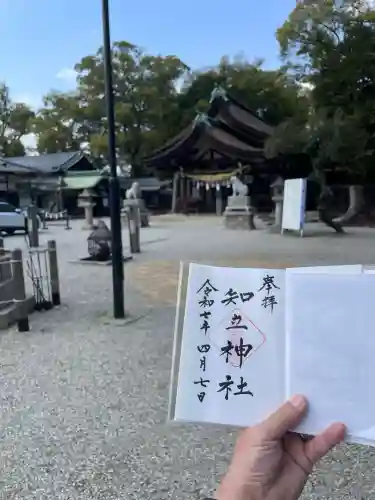 奉拝
知立神社
令和七年四月七日